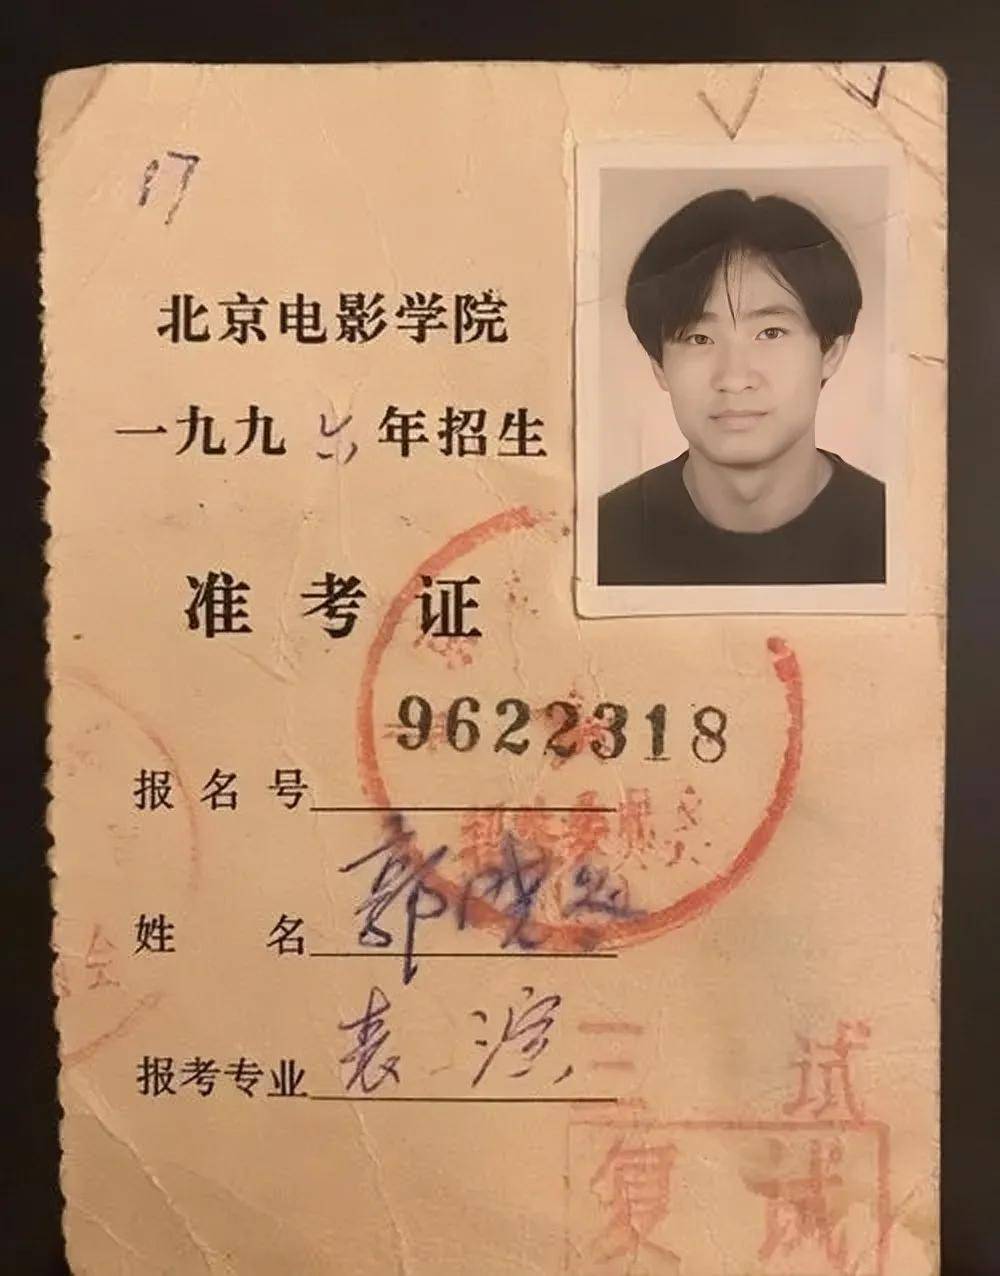 17
北京电影学院
一九九六年招生
准考证
9622318
报名号
姓名 郭晓
报考专业 表演
三试
复试
会